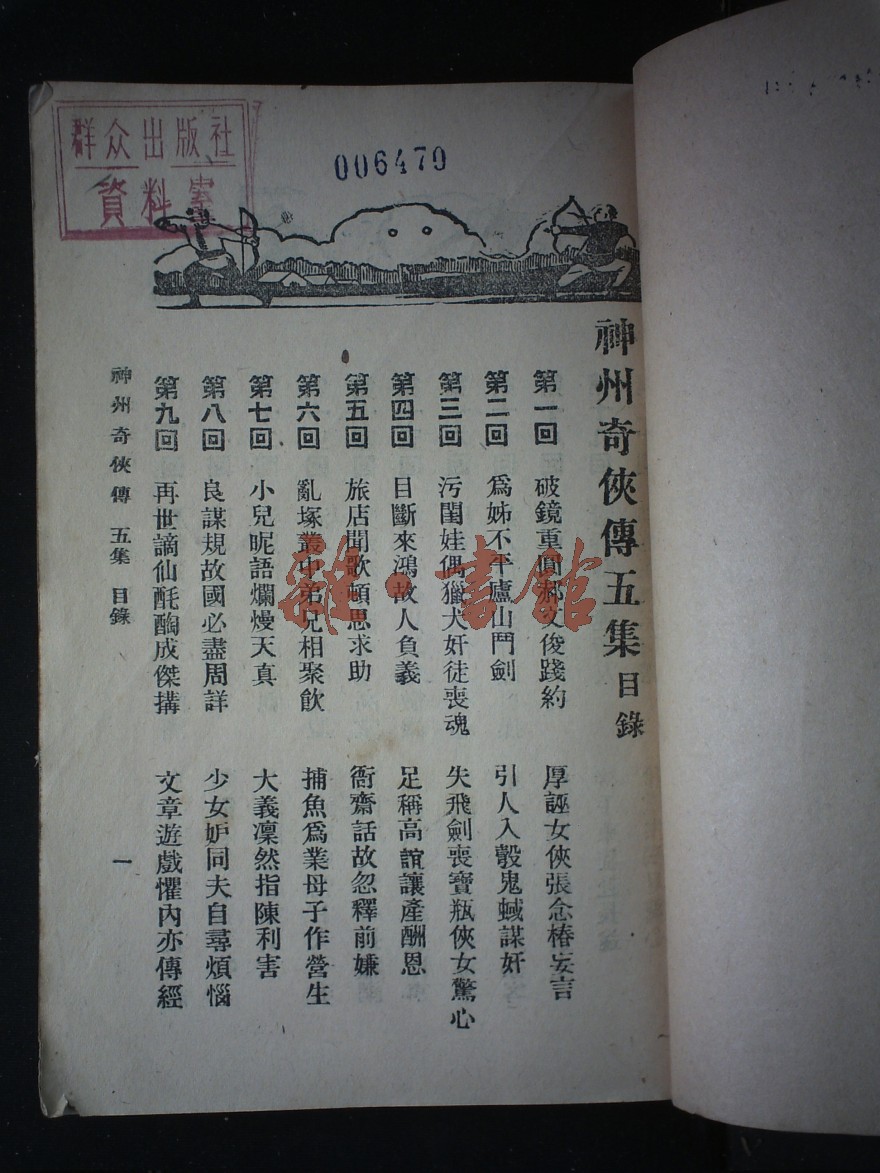 群众出版社
資料室
006470
神州奇俠傳五集目錄
第一回 破鏡重圓郝文俊踐約 厚誣女俠張念椿妄言
第二回 爲姊不平廬山鬥劍 引人入彀鬼蜮謀奸
第三回 污閨娃偶獵犬奸徒喪魂 失飛劍喪寶瓶俠女驚心
第四回 目斷來鴻故人負義 足稱高誼讓產酬恩
第五回 旅店聞歌頓思求助 衙齋話故忽釋前嫌
第六回 亂塚叢中弟兄相聚飲 捕魚爲業母子作營生
第七回 小兒昵語爛熳天真 大義凜然指陳利害
第八回 良謀規故國必盡周詳 少女妒同夫自尋煩惱
第九回 再世謫仙酕醄成傑搆 文章遊戲懼內亦傳經
神州奇俠傳 五集 目錄
一
雜·書館